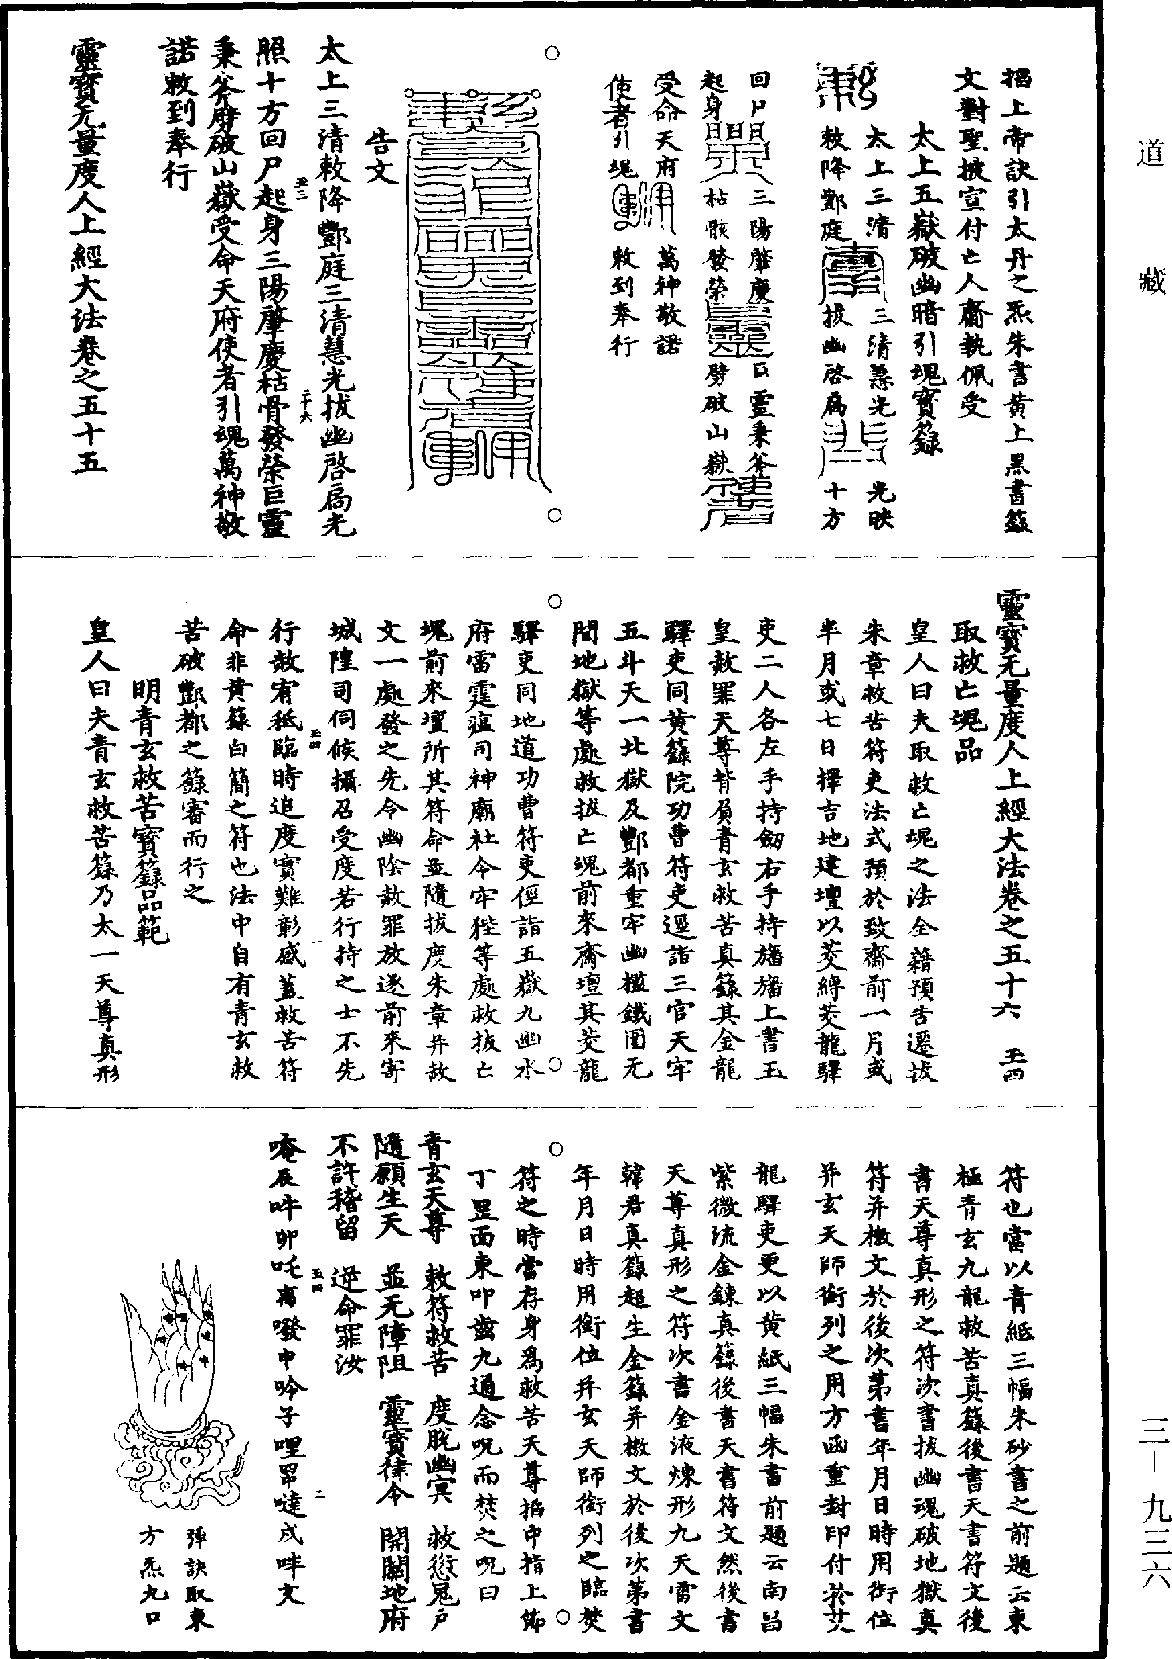 道藏
掐上帝訣引太丹之炁朱書黄上黑書籙
文對聖披宣付亡人齋執佩受
太上五嶽破幽暗引魂寳籙
太上三清 三清慧光 光映
敕降酆庭 拔幽啓扃 十方
回尸 三陽肇慶 巨靈秉斧
起身 枯骸發榮 劈破山嶽
受命天府 萬神敬諾
使者引魂 敕到奉行
告文
太上三清敕降酆庭三清慧光拔幽啓扃光
照十方回尸起身三陽肇慶枯骨發榮巨靈
秉斧劈破山嶽受命天府使者引魂萬神敬
諾敕到奉行
靈寳无量度人上經大法卷之五十五
靈寳无量度人上經大法卷之五十六 五四
取救亡魂品
皇人曰夫取救亡魂之法全藉預告遷拔
朱章救苦符吏法式預於致齋前一月或
半月或七日擇吉地建壇以茭縛茭龍驛
吏二人各左手持劒右手持旛旛上書玉
皇赦罪天尊背負青玄救苦真籙其金龍
驛吏同黄籙院功曹符吏逕詣三官天牢
五斗天一北獄及酆都重牢幽檻鐵圍无
間地獄等處救拔亡魂前來齋壇其茭龍
驛吏同地道功曹符吏徑詣五嶽九幽水
府雷霆瘟司神廟社令牢狴等處救拔亡
魂前來壇所其符命並隨拔度朱章并赦
文一處發之先令幽陰赦罪放逐前來寄
城隍司伺候攝召受度若行持之士不先
行赦宥秪臨時追度實難彰感蓋救苦符
命非黄籙白簡之符也法中自有青玄救
苦破酆都之籙審而行之
明青玄救苦寳籙品範
皇人曰夫青玄救苦籙乃太一天尊真形
符也當以青紙三幅朱砂書之前題云東
極青玄九龍救苦真籙後書天書符文後
書天尊真形之符次書拔幽魂破地獄真
符并檄文於後次第書年月日時用銜位
并玄天師銜列之用方函重封印付茭
龍驛吏更以黄紙三幅朱書前題云南昌
紫微流金鍊真籙後書天書符文然後書
天尊真形之符次書金液煉形九天雷文
韓君真籙超生金籙并檄文於後次第書
年月日時用銜位并玄天師銜列之臨焚
符之時當存身爲救苦天尊掐中指上節
丁罡面東叩齒九通念呪而焚之呪曰
青玄天尊 敕符救苦 度脱幽冥 救愆冤尸
隨願生天 並无障阻 靈寳律令 開闢地府
不許稽留 逆命罪汝
唵辰吽卯吒寅㘄申吟子哩罡噠戌吽文
彈訣取東
方炁九口
三—九三六